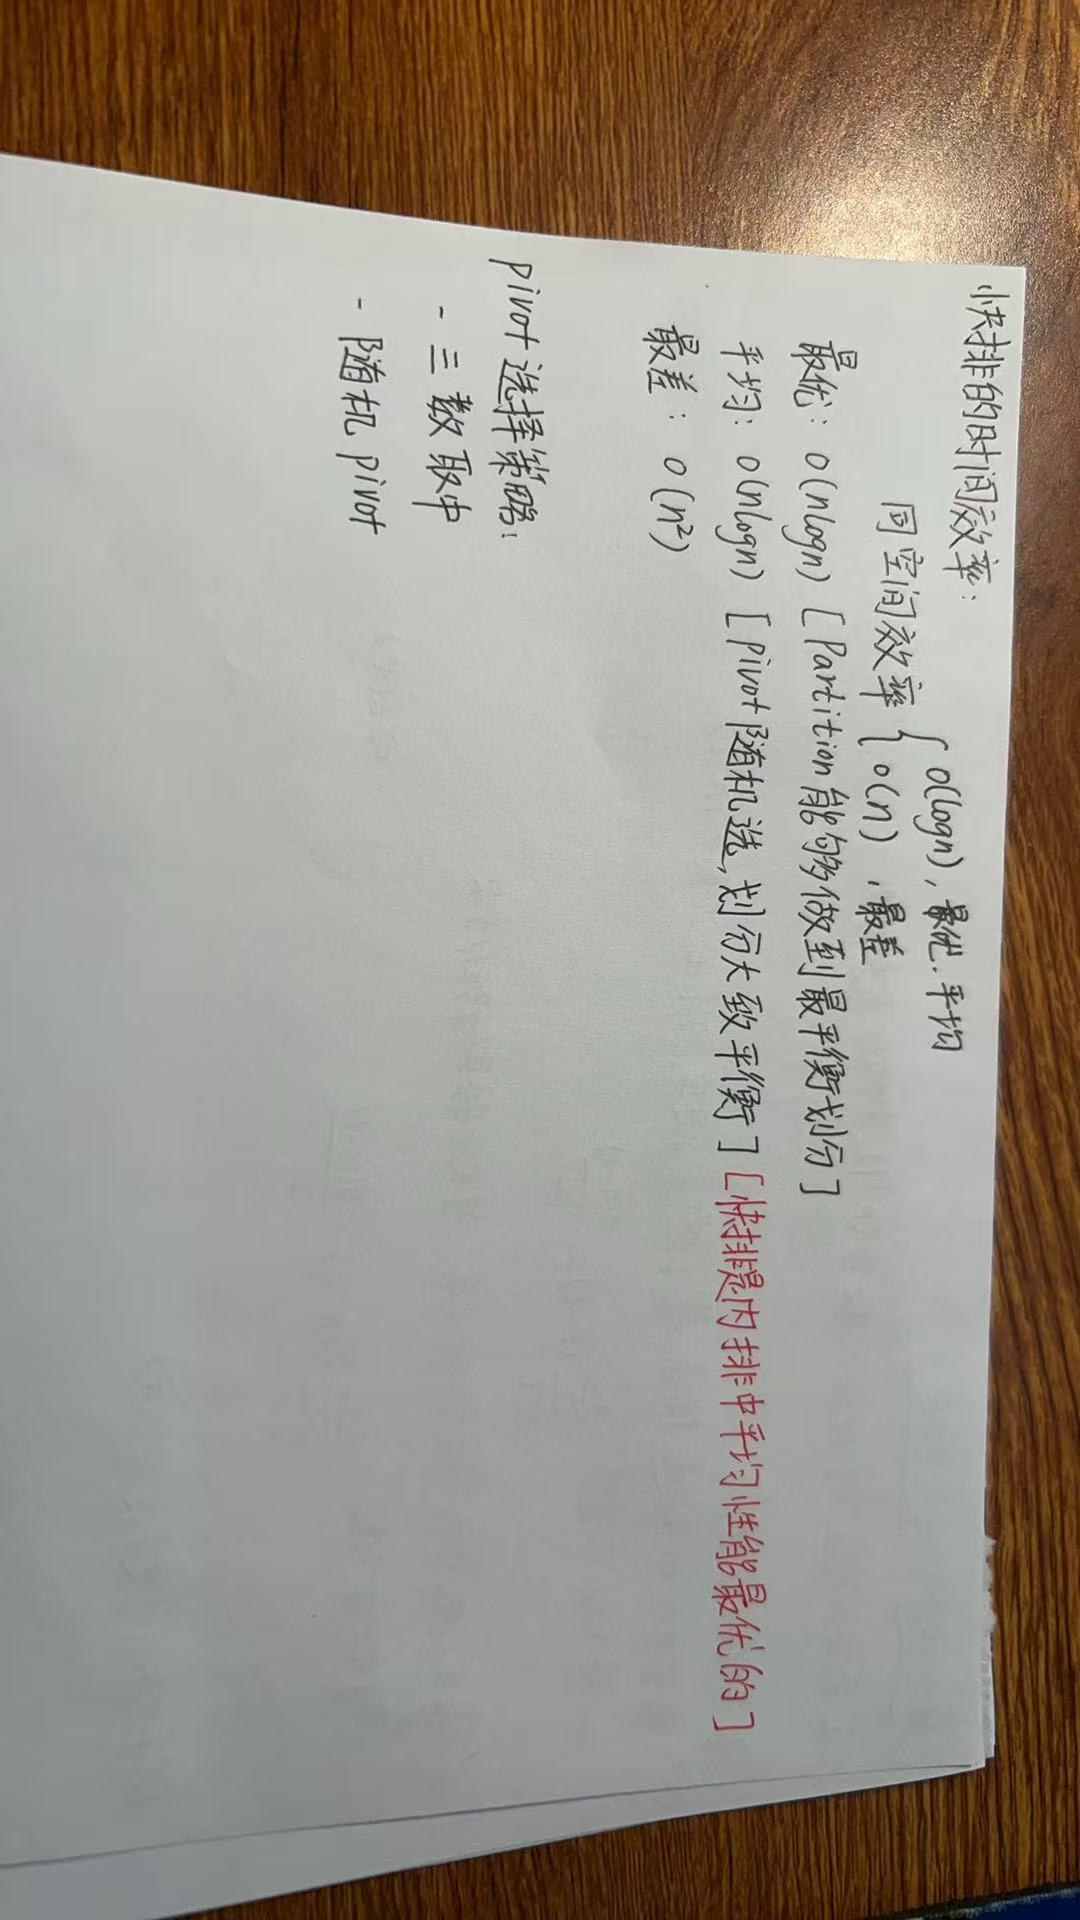 快排的时间效率:
{ O(logn), 最优.平均
同空间效率 { O(n) , 最差
最优: O(nlogn) [Partition能够做到最平衡划分]
平均: O(nlogn) [Pivot随机选,划分大致平衡] [快排是内排中平均性能最优的]
最差: O(n²)
pivot选择策略:
- 三数取中
- 随机pivot